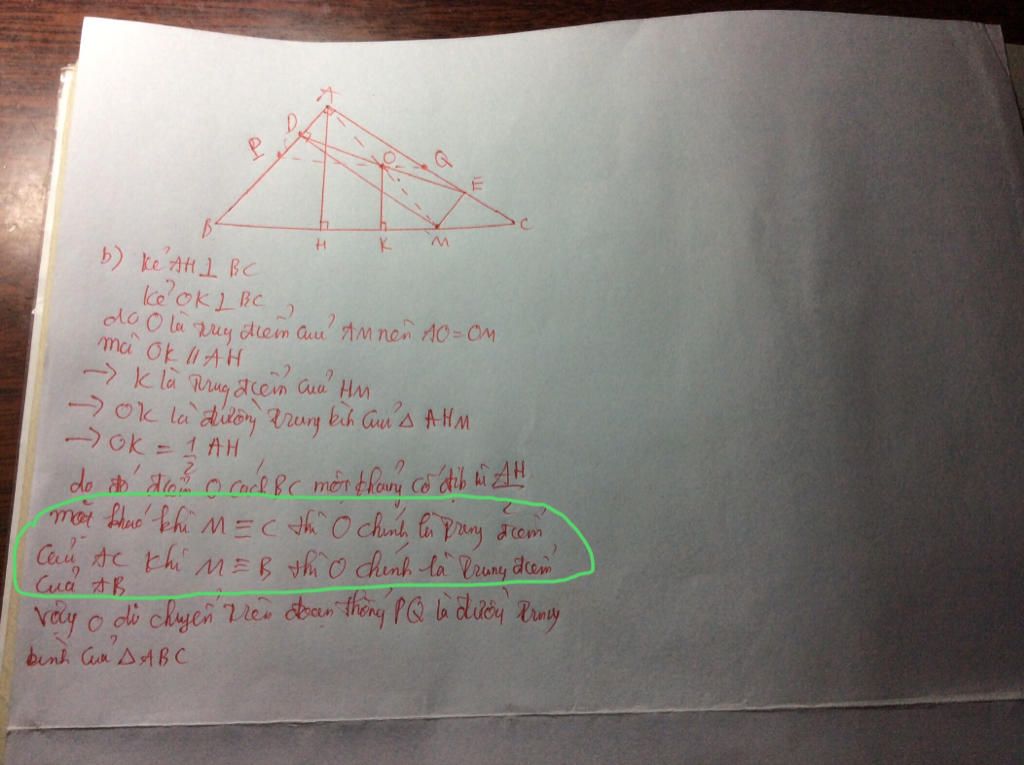 A
D
P
O
Q
E
B
H
K
M
C
b) Kẻ AH ⊥ BC
Kẻ OK ⊥ BC
do O là trung điểm của AM nên AO = OM
mà OK // AH
→ K là trung điểm của HM
→ OK là đường trung bình của Δ AHM
→ OK = 1/2 AH
do đó điểm O cách BC một khoảng cố định là AH/2
mặt khác khi M ≡ C thì O chính là trung điểm
của AC khi M ≡ B thì O chính là trung điểm
của AB
vậy O di chuyển trên đoạn thẳng PQ là đường trung
bình của Δ ABC